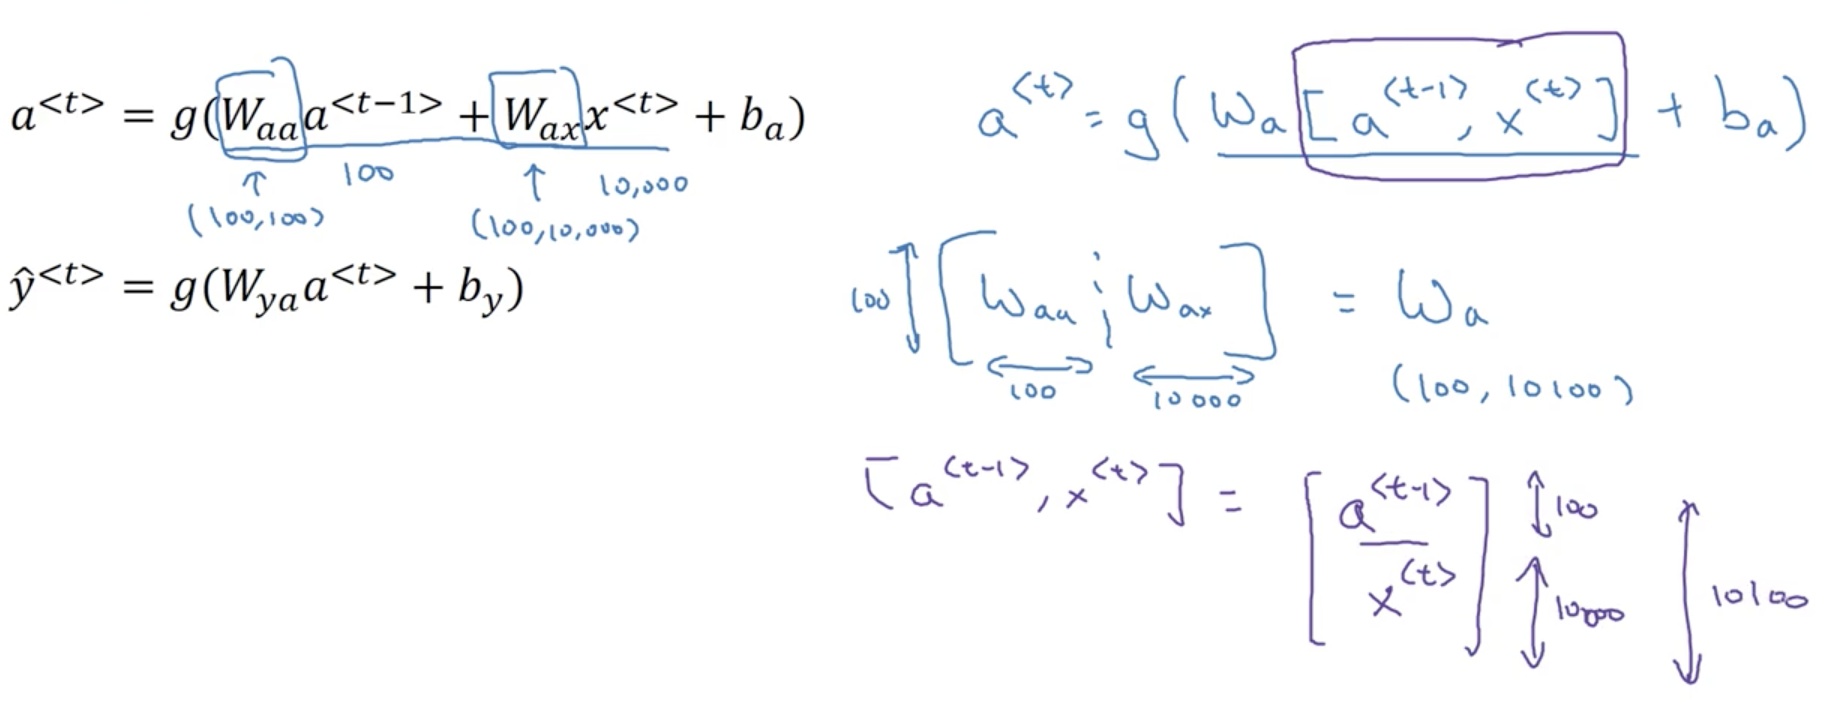 a<t> = g(Waa a<t−1> + Wax x<t> + ba)
100 10,000
(100,100) (100,10,000)
ŷ<t> = g(Wya a<t> + by)
a<t> = g(Wa [a<t-1>, x<t>] + ba)
100 [Waa ¦ Wax] = Wa
100 10000 (100, 10100)
[a<t-1>, x<t>] = [a<t-1> 100
x<t>] 10000 10100